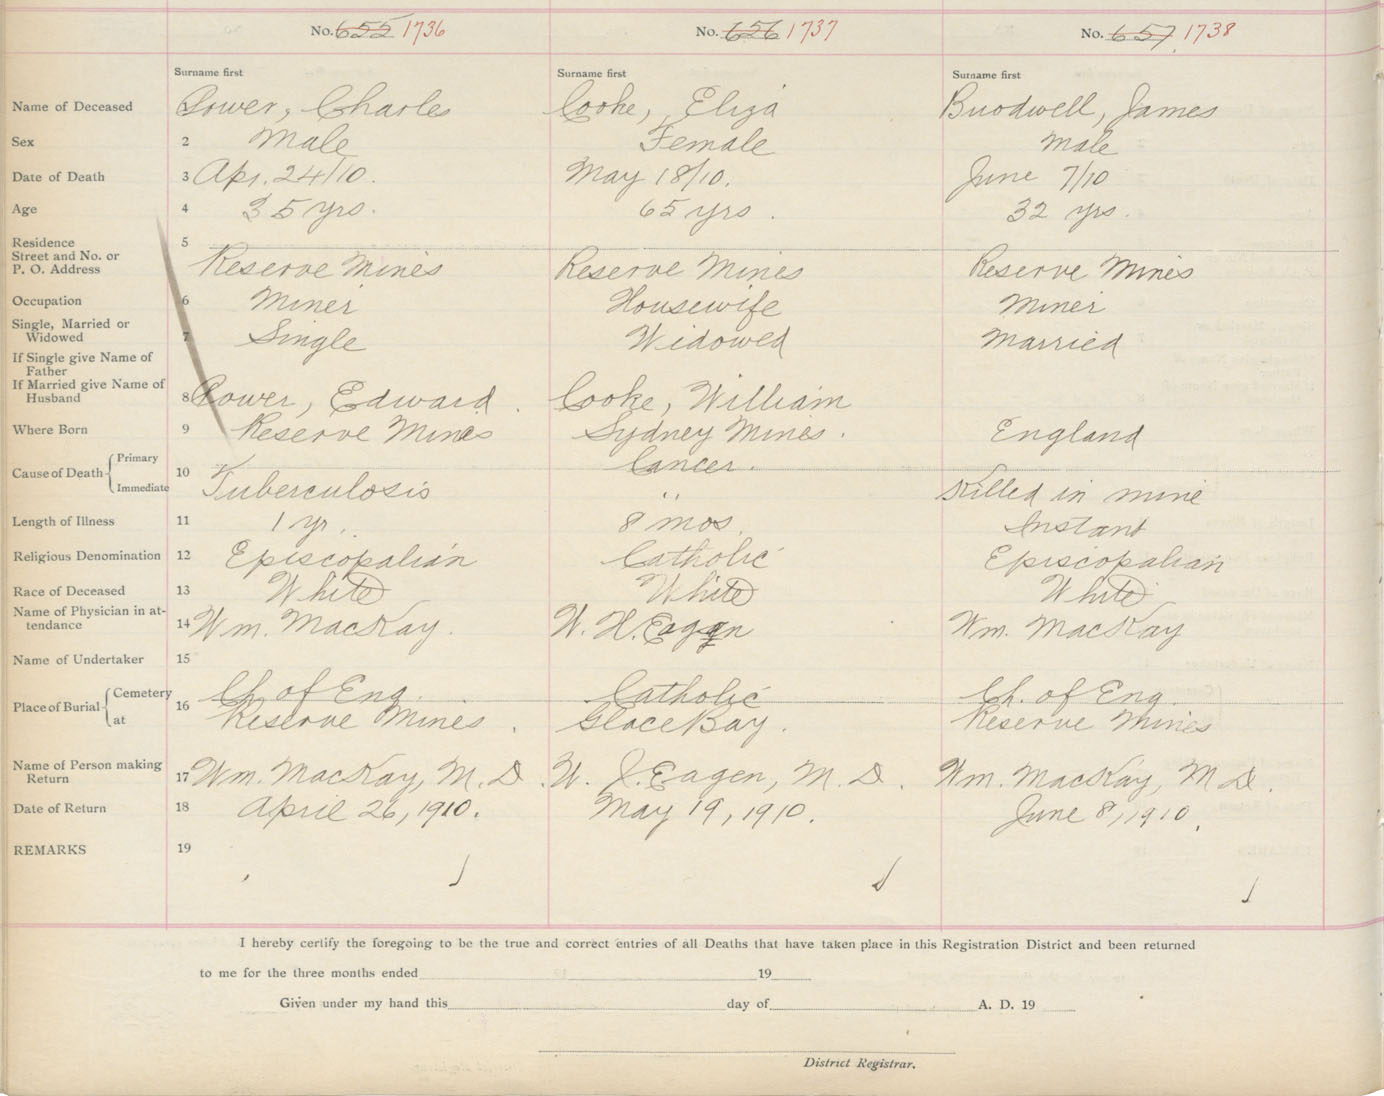 No. 655 1736 No. 656 1737 No. 657 1738
Surname first Surname first Surname first
Name of Deceased 1 Power, Charles Cooke, Eliza Brodwell, James
Sex 2 Male Female Male
Date of Death 3 Apr. 24/10. May 18/10. June 7/10
Age 4 35 yrs. 65 yrs. 32 yrs.
Residence 5
Street and No. or
P. O. Address Reserve Mines Reserve Mines Reserve Mines
Occupation 6 Miner Housewife Miner
Single, Married or
Widowed 7 Single Widowed Married
If Single give Name of
Father
If Married give Name of
Husband 8 Power, Edward. Cooke, William
Where Born 9 Reserve Mines Sydney Mines. England
Cause of Death Primary Cancer.
10
Immediate Tuberculosis " Killed in mine
Length of Illness 11 1 yr. 8 mos. Instant
Religious Denomination 12 Episcopalian Catholic Episcopalian
Race of Deceased 13 White White White
Name of Physician in at-
tendance 14 Wm. MacKay. W. H. Eagen Wm. MacKay
Name of Undertaker 15
Place of Burial Cemetery 16 Ch. of Eng. Catholic Ch. of Eng.
at Reserve Mines. Glace Bay. Reserve Mines
Name of Person making
Return 17 Wm. MacKay, M. D. W. J. Eagen, M. D. Wm. MacKay, M D.
Date of Return 18 April 26, 1910. May 19, 1910. June 8, 1910.
REMARKS 19
I hereby certify the foregoing to be the true and correct entries of all Deaths that have taken place in this Registration District and been returned
to me for the three months ended 19
Given under my hand this day of A. D. 19
District Registrar.